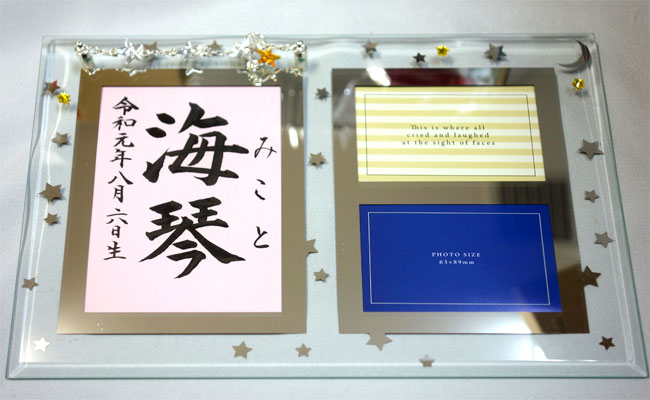 海琴
みこと
令和元年八月六日生
This is where all
cried and laughed
at the sight of faces
PHOTO SIZE
63×89mm